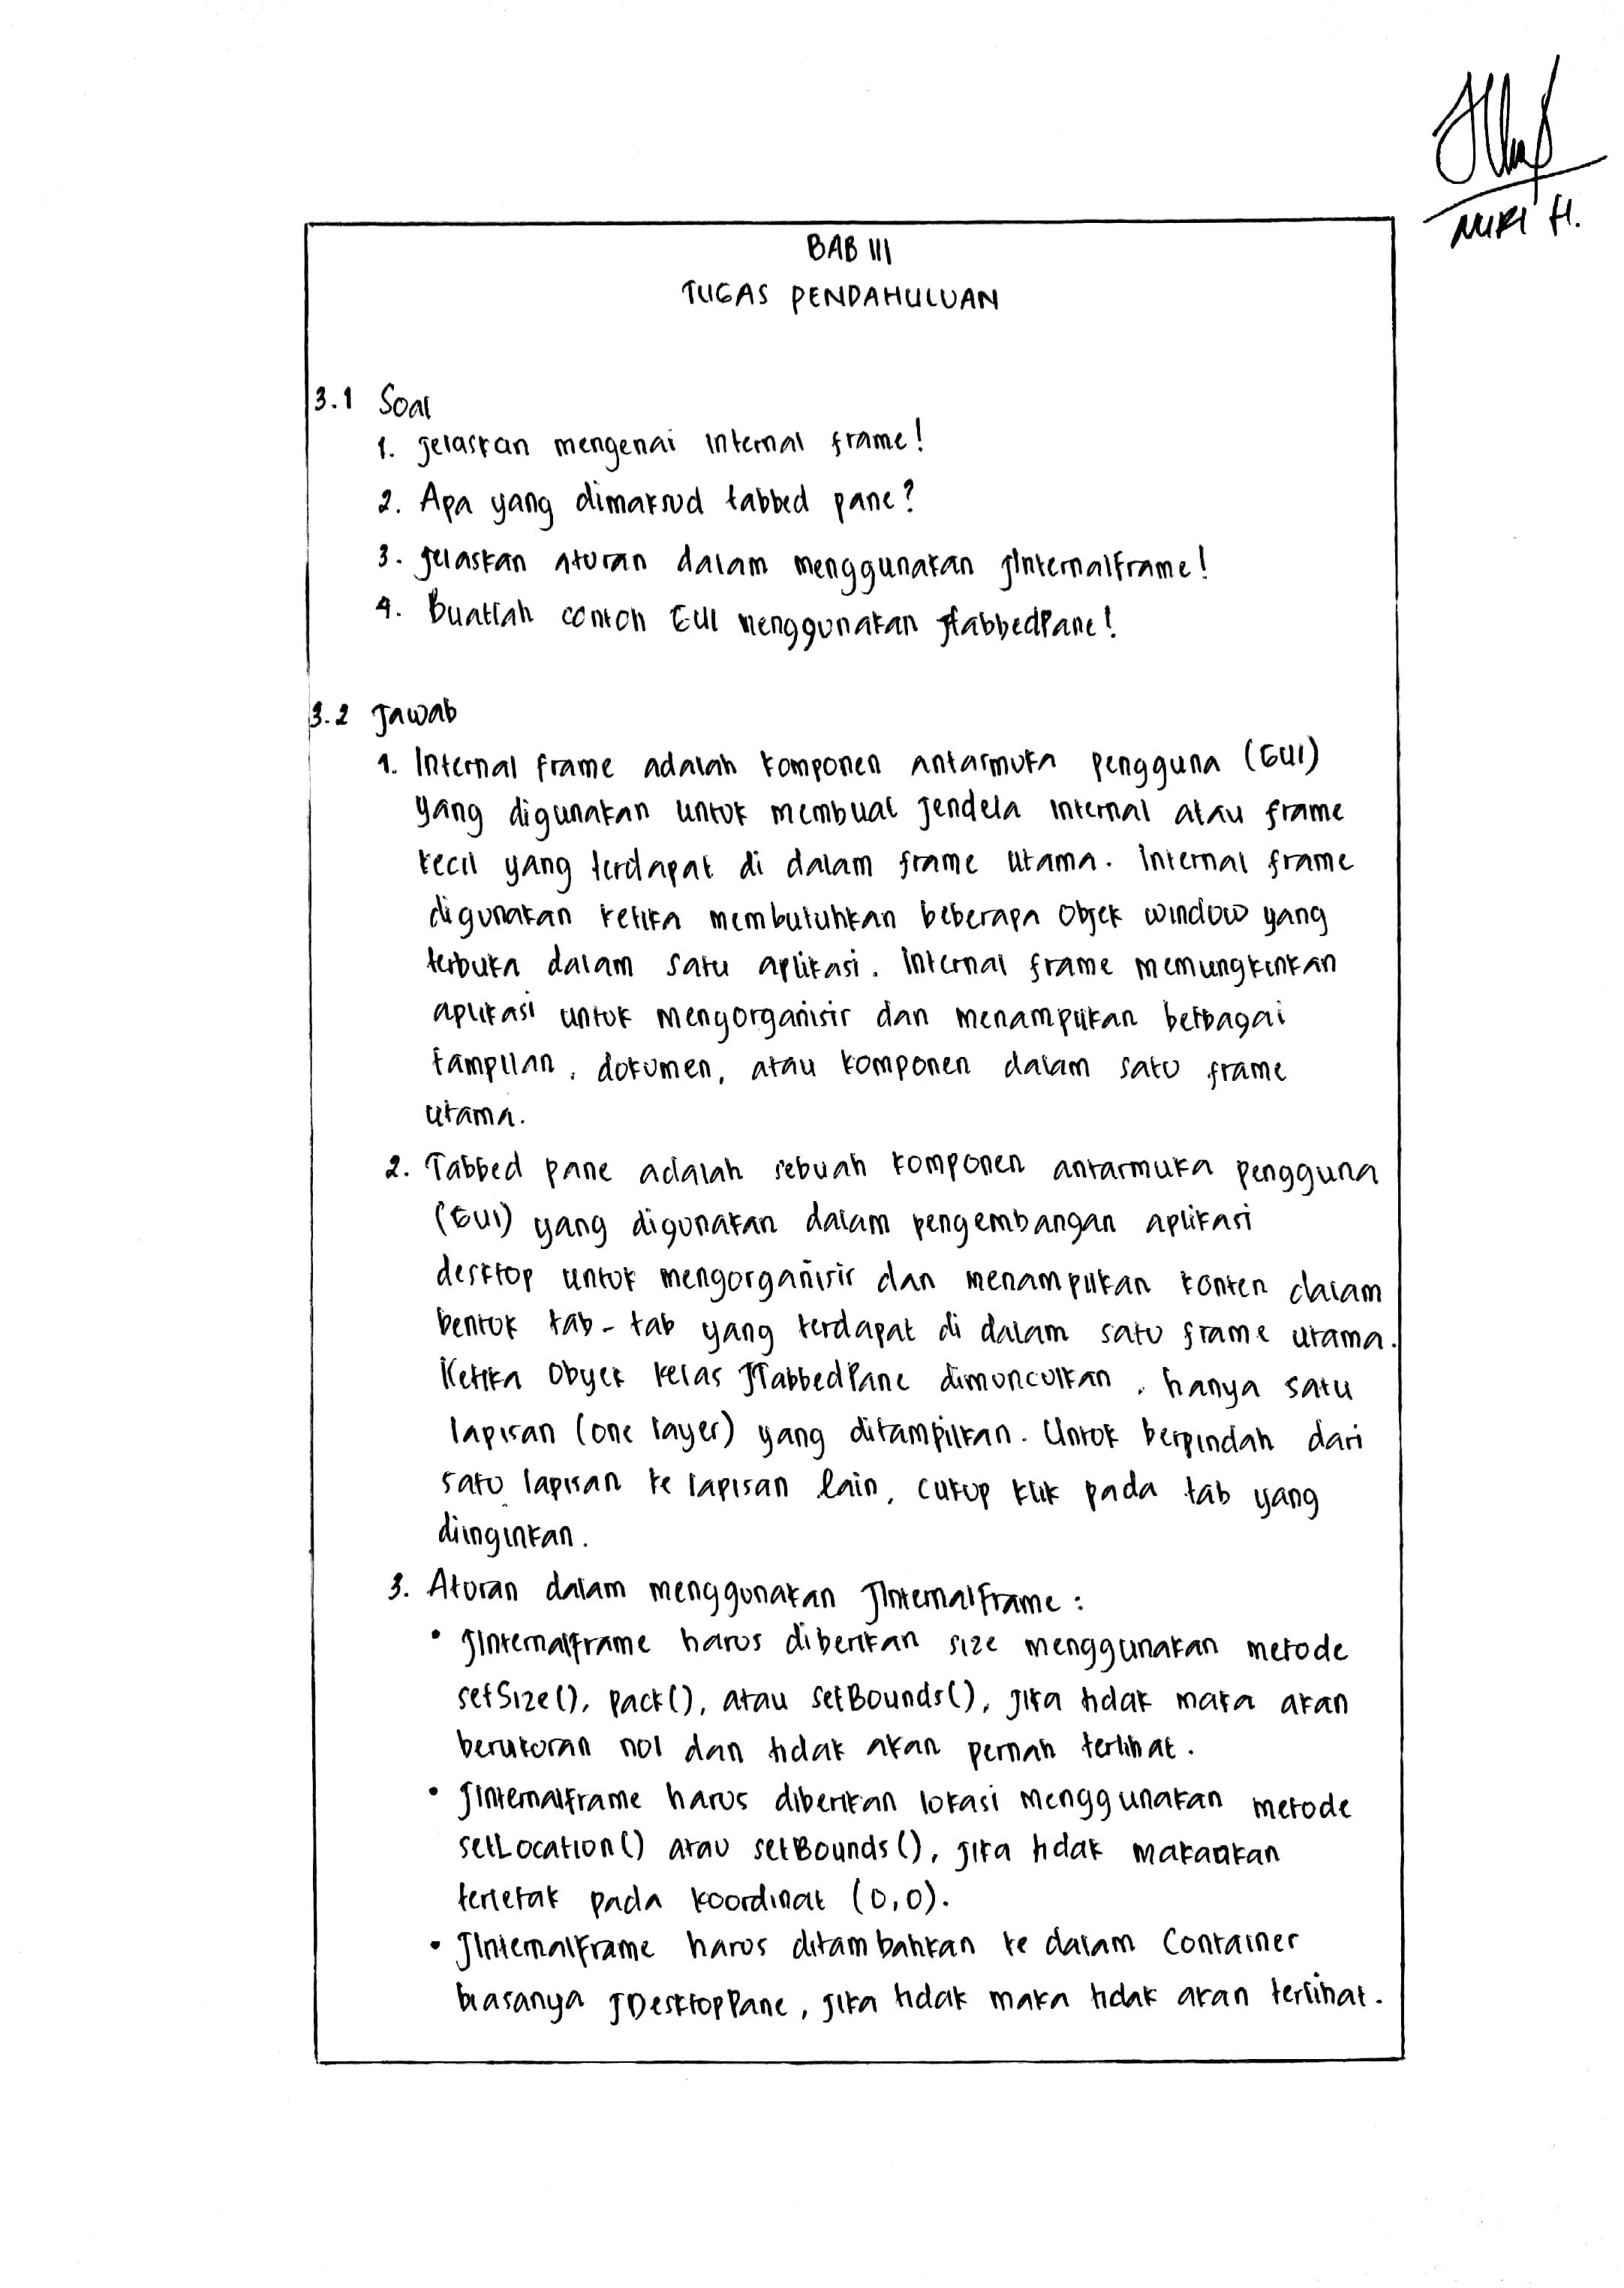 NURI H.
BAB III
TUGAS PENDAHULUAN
3.1 Soal
1. Jelaskan mengenai internal frame!
2. Apa yang dimaksud tabbed pane?
3. Jelaskan aturan dalam menggunakan JInternalFrame!
4. Buatlah contoh GUI menggunakan JTabbedPane!
3.2 Jawab
1. Internal frame adalah komponen antarmuka pengguna (GUI)
yang digunakan untuk membuat jendela internal atau frame
kecil yang terdapat di dalam frame utama. Internal frame
digunakan ketika membutuhkan beberapa objek window yang
terbuka dalam satu aplikasi. Internal frame memungkinkan
aplikasi untuk mengorganisir dan menampilkan berbagai
tampilan, dokumen, atau komponen dalam satu frame
utama.
2. Tabbed pane adalah sebuah komponen antarmuka pengguna
(GUI) yang digunakan dalam pengembangan aplikasi
desktop untuk mengorganisir dan menampilkan konten dalam
bentuk tab-tab yang terdapat di dalam satu frame utama.
Ketika Obyek kelas JTabbedPane dimunculkan, hanya satu
lapisan (one layer) yang ditampilkan. Untuk berpindah dari
satu lapisan ke lapisan lain, cukup klik pada tab yang
diinginkan.
3. Aturan dalam menggunakan JInternalFrame :
• JInternalFrame harus diberikan size menggunakan metode
setSize(), pack(), atau setBounds(), jika tidak maka akan
berukuran nol dan tidak akan pernah terlihat.
• JInternalFrame harus diberikan lokasi menggunakan metode
setLocation() atau setBounds(), jika tidak maka akan
terletak pada koordinat (0,0).
• JInternalFrame harus ditambahkan ke dalam Container
biasanya JDesktopPane, jika tidak maka tidak akan terlihat.